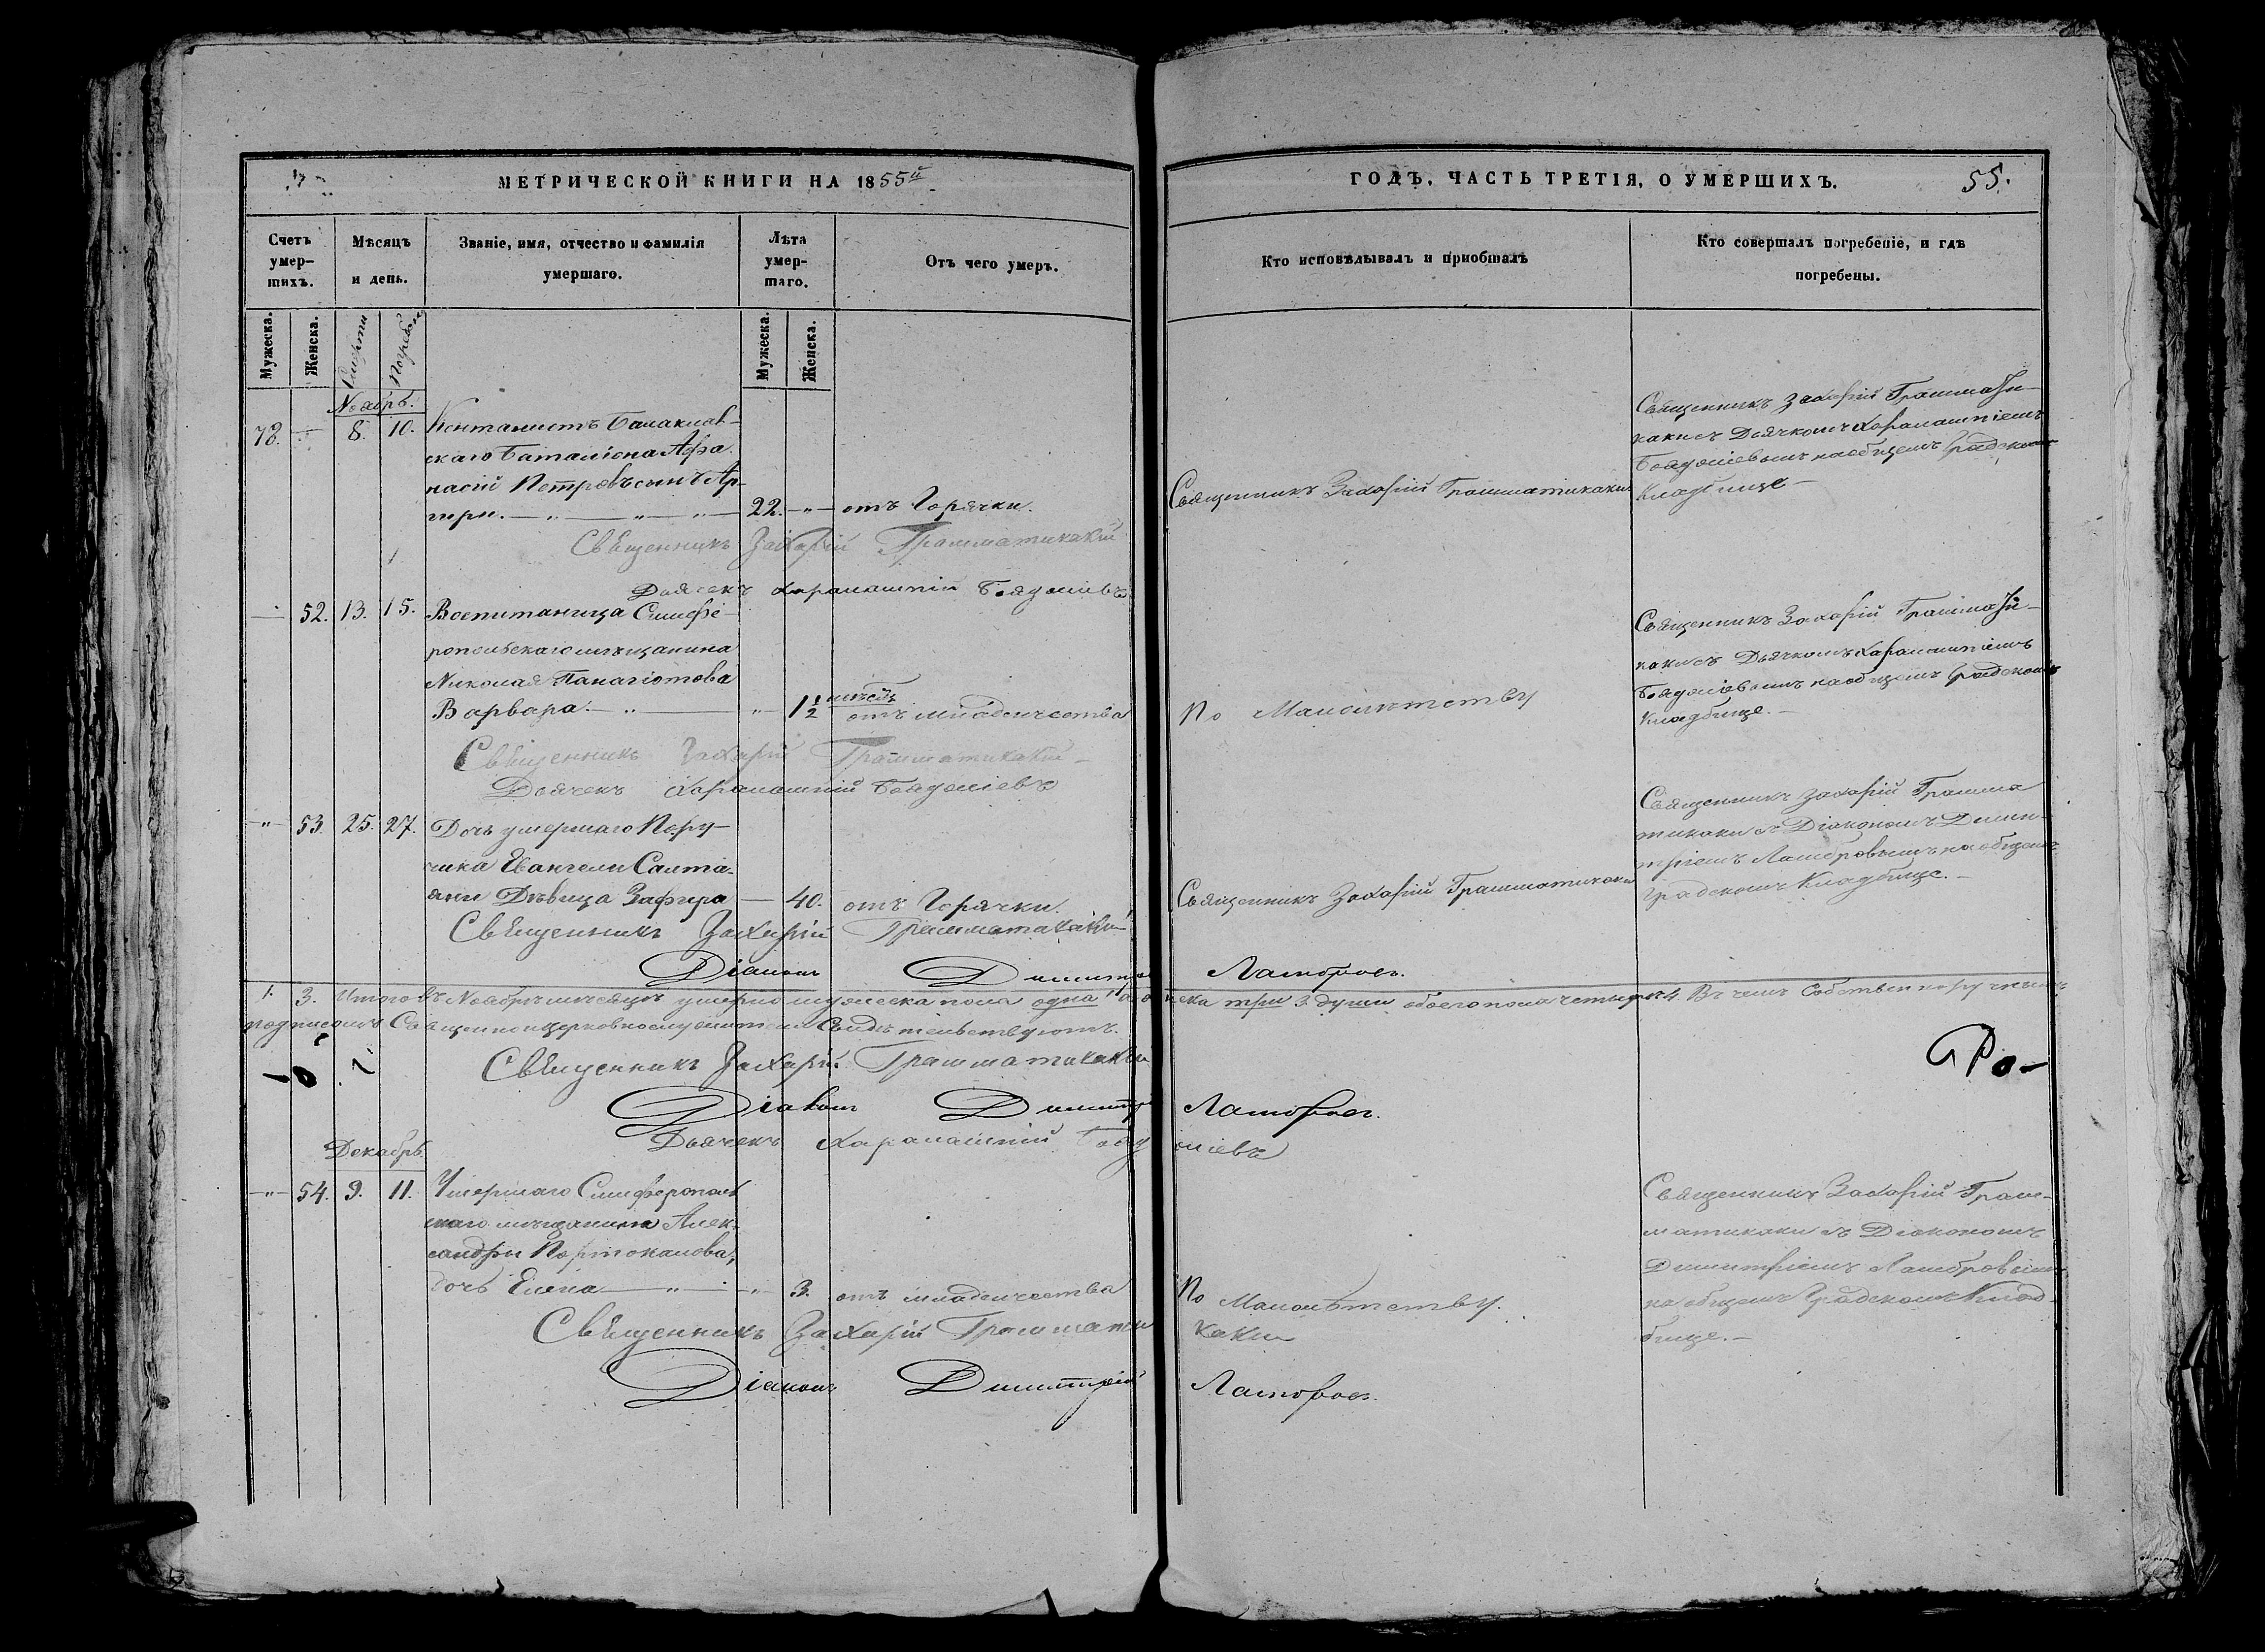 МЕТРИЧЕСКОЙ КНИГИ НА 1855й
ГОДЪ, ЧАСТЬ ТРЕТІЯ, О УМЕРШИХЪ.
55.
Счетъ умер-
шихъ.
Мѣсяцъ
и день.
Званіе, имя, отчество и фамилія
умершаго.
Лѣта умер-
шаго.
Отъ чего умеръ.
Кто исповѣдывалъ и пріобщалъ
Кто совершалъ погребеніе, и гдѣ
погребены.
Мужеска.
Женска.
Смерти
Погребен
Мужеска.
Женска.
Ноябрь.
78. 8. 10.
Балаклав-
скаго Баталіона Афа-
насій Петровъ сынъ Ар-
гири. 22. отъ Горячки.
Священникъ Захарій Грамматикаки
Священникъ Захарій Граммати-
каки съ Дьячкомъ Харалампіемъ
на общемъ Градскомъ
Кладбище
Священникъ Захарій Грамматикакій
Дьячекъ Харалампій
52. 13. 15.
Воспитанница Симфе-
ропольскаго мѣщанина
Николая Панагіотова
Варвара 1 1/2 мѣсяц
отъ младенчества
По Малолѣтству
Священникъ Захарій Граммати-
каки съ Дьячкомъ Харалампіемъ
на общемъ Градскомъ
Кладбище.
Священникъ Захарій Грамматикакій
Дьячекъ Харалампій
53. 25. 27.
Дочь умершаго Пору-
чика Евангели Салта-
яни Дѣвица Зафира 40. отъ Горячки.
Священникъ Захарій Грамматикаки
Священникъ Захарій Грамма-
тикаки съ Діакономъ Дими-
тріемъ Ламбровымъ на общемъ
Градскомъ Кладбище.
Священникъ Захарій Грамматикаки
Діаконъ Димитрій Ламбровъ.
1. 3. Итого въ Ноябрѣ мѣсяцѣ умерло мужеска пола одна 1 а женска три 3 души обоего пола четыре 4. Въ чемъ Собственноручнымъ
подписомъ Священноцерковнослужители Свидѣтельствуютъ.
Священникъ Захарій Грамматикаки
Діаконъ Димитрій Ламбровъ.
Дьячекъ Харалампій
Декабрь.
54. 9. 11.
Умершаго Симферополь
скаго мѣщанина Алек-
сандры Портокалова,
дочь Елена 3. отъ младенчества
По Малолѣтству.
Священникъ Захарій Грам-
матикаки съ Діакономъ
Димитріемъ Ламбровымъ
на общемъ Градскомъ Клад-
бище.
Священникъ Захарій Грамматикаки
Діаконъ Димитрій Ламбровъ.